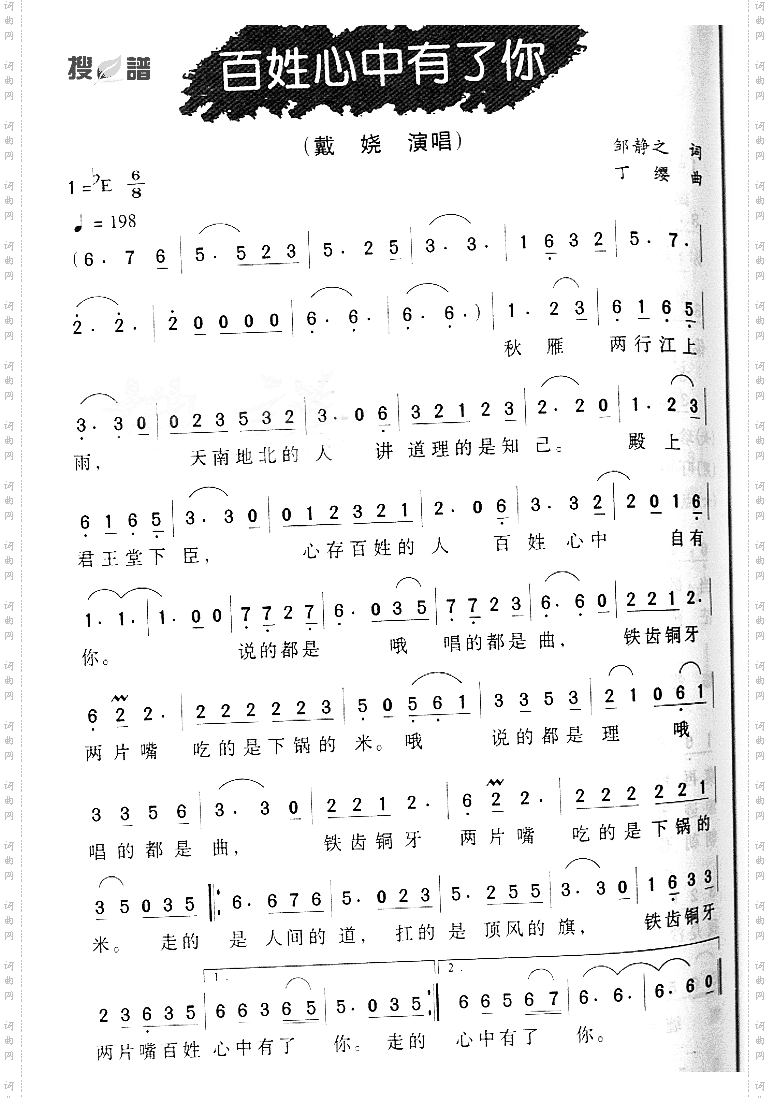 搜 谱
百姓心中有了你
(戴 娆 演唱)
邹静之 词
丁 缨 曲
1=♭E 6/8
♩= 198
(6. 7 6 | 5. 5 2 3 | 5. 2 5 | 3. 3. | 1 6 3 2 | 5. 7. |
2. 2. | 2 0 0 0 0 | 6. 6. | 6. 6.) | 1. 2 3 | 6 1 6 5 |
秋 雁 两行江上
3. 3 0 | 0 2 3 5 3 2 | 3. 0 6 | 3 2 1 2 3 | 2. 2 0 | 1. 2 3 |
雨, 天南地北的 人 讲 道理的是知 己。 殿 上
6 1 6 5 | 3. 3 0 | 0 1 2 3 2 1 | 2. 0 6 | 3. 3 2 | 2 0 1 6 |
君王堂下 臣, 心存百姓的 人 百 姓 心中 自有
1. 1. | 1. 0 0 | 7 7 2 7 | 6. 0 3 5 | 7 7 2 3 | 6. 6 0 | 2 2 1 2. |
你。 说的都是 哦 唱的都是 曲, 铁齿铜牙
6 2 2. | 2 2 2 2 2 3 | 5 0 5 6 1 | 3 3 5 3 | 2 1 0 6 1 |
两片嘴 吃的是下锅的 米。哦 说的都是 理 哦
3 3 5 6 | 3. 3 0 | 2 2 1 2. | 6 2 2. | 2 2 2 2 2 1 |
唱的都是 曲, 铁齿铜牙 两片嘴 吃的是下锅的
3 5 0 3 5 |: 6. 6 7 6 | 5. 0 2 3 | 5. 2 5 5 | 3. 3 0 | 1 6 3 3 |
米。 走的 是 人间的 道, 扛的 是 顶风的 旗, 铁齿铜牙
1. 2.
2 3 6 3 5 | 6 6 3 6 5 | 5. 0 3 5 :| 6 6 5 6 7 | 6. 6. | 6. 6 0 |
两片嘴百姓 心中有了 你。 走的 心中有了 你。
词曲网